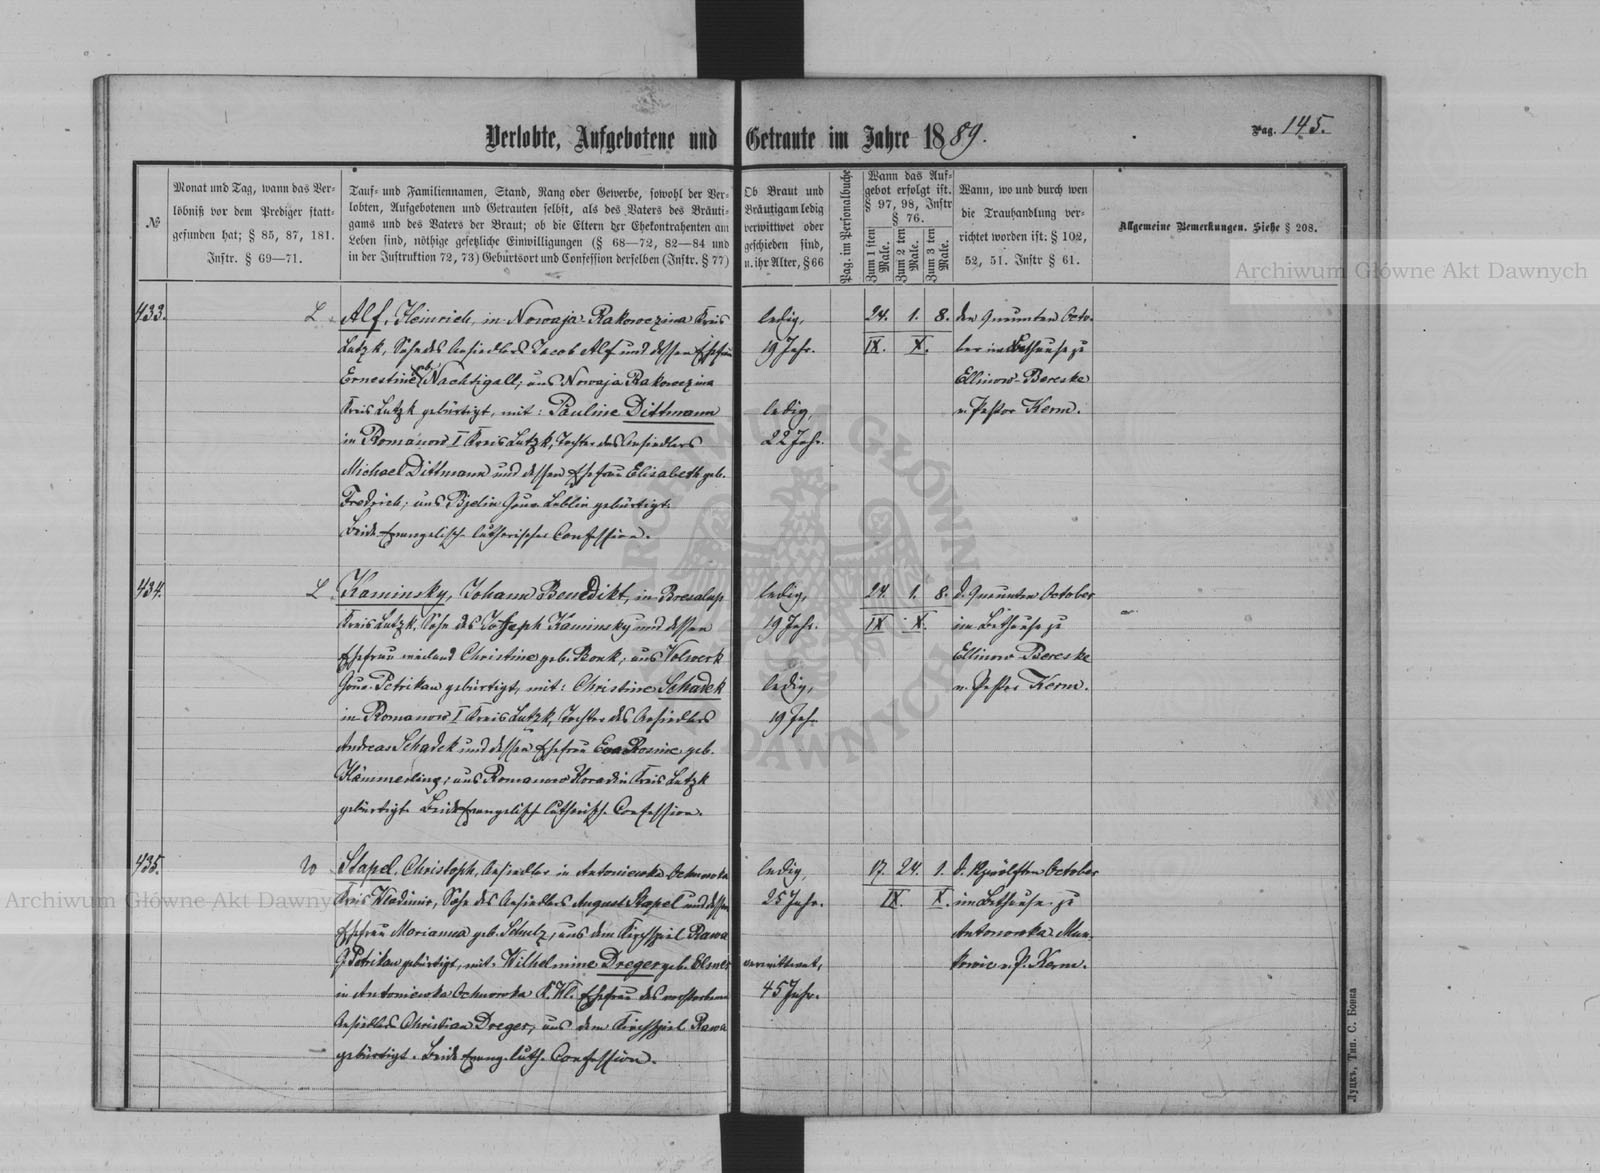 Verlobte, Aufgebotene und Getraute im Jahre 1889.
Pag. 145.
№
Monat und Tag, wann das Ver-
löbniß vor dem Prediger statt-
gefunden hat; § 85, 87, 181.
Instr. § 69—71.
Tauf- und Familiennamen, Stand, Rang oder Gewerbe, sowohl der Ver-
lobten, Aufgebotenen und Getrauten selbst, als des Vaters des Bräuti-
gams und des Vaters der Braut; ob die Eltern der Ehekontrahenten am
Leben sind, nöthige gesetzliche Einwilligungen (§ 68—72, 82—84 und
in der Instruktion 72, 73) Geburtsort und Confession derselben (Instr. § 77)
Ob Braut und
Bräutigam ledig
verwittwet oder
geschieden sind,
u. ihr Alter, § 66
Pag. im Personalbuche
Wann das Auf-
gebot erfolgt ist.
§ 97, 98, Instr
§ 76.
Zum 1 sten Male.
Zum 2 ten Male.
Zum 3 ten Male.
Wann, wo und durch wen
die Trauhandlung ver-
richtet worden ist: § 102,
52, 51. Instr § 61.
Allgemeine Bemerkungen. Siehe § 208.
Archiwum Główne Akt Dawnych
433.
L.
Alf, Heinrich, in Nowaja Rakowczina Kreis
Lutzk, Sohn des Ansiedlers Jacob Alf und dessen Ehefrau
Ernestine geb. Nachtigall, aus Nowaja Rakowczina
Kreis Lutzk gebürtigt, mit: Pauline Dittmann
in Romanow I Kreis Lutzk, Tochter des Ansiedlers
Michael Dittmann und dessen Ehefrau Elisabeth geb.
Fredrich; aus Bjelin Gouv. Lublin gebürtigt.
Beide Evangelisch lutherischer Confession.
ledig,
19 Jahr.
ledig,
22 Jahr.
24. 1. 8.
IX. X.
den Neunten Octo-
ber im Bethause zu
Ellinow-Bereske
v. Pastor Kerm.
434.
L.
Kaminsky, Johann Benedikt, in
Kreis Lutzk, Sohn des Joseph Kaminsky und dessen
Ehefrau weiland Christine geb. Bonk, aus Volwerk
Gouv. Petrikau gebürtigt, mit: Christine Schadek
in Romanow I Kreis Lutzk, Tochter des Ansiedlers
Andreas Schadek und dessen Ehefrau Eva Rosine geb.
Hämmerling, aus Romanow Kreis Lutzk
gebürtigt. Beide Evangelisch lutherisch. Confession.
ledig,
19 Jahr.
ledig,
19 Jahr
24. 1. 8.
IX X.
d. Neunten October
im Bethause zu
Ellinow Bereske
v. Pastor Kerm.
435.
W
Stapel, Christoph, Ansiedler in Antoniewka Ochnowka
Kreis Wladimir, Sohn des Ansiedlers August Stapel und dessen
Ehefrau Marianna geb. Schulz, aus dem Kirchspiel Rawa
G. Petrikau gebürtigt, mit: Wilhelmine Dreger geb. Elmer
in Antoniewka Ochnowka K. Wl. Ehefrau des verstorbenen
Ansiedlers Christian Dreger, aus dem Kirchspiel Rawa
gebürtigt. Beide Evang. luth. Confession.
ledig,
25 Jahr.
verwittwet,
45 Jahr.
17. 24. 1.
IX. X.
d. Zwölften October
im Bethause zu
Antonowka
v. P. Kerm.
Archiwum Główne Akt Dawnych
ARCHIWUM GŁÓWNE AKT DAWNYCH
Луцкъ, Тип. С. Бонка